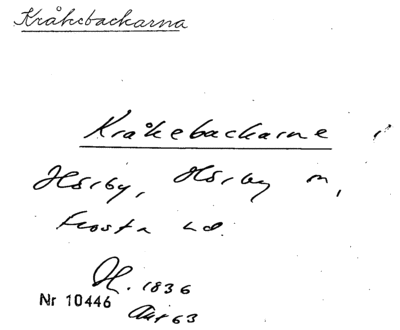 Kråkebackarna
Kråkebackarne i
Hörby, Hörby m,
Frosta hd.
H. 1836
Nr 10446
Akt 63